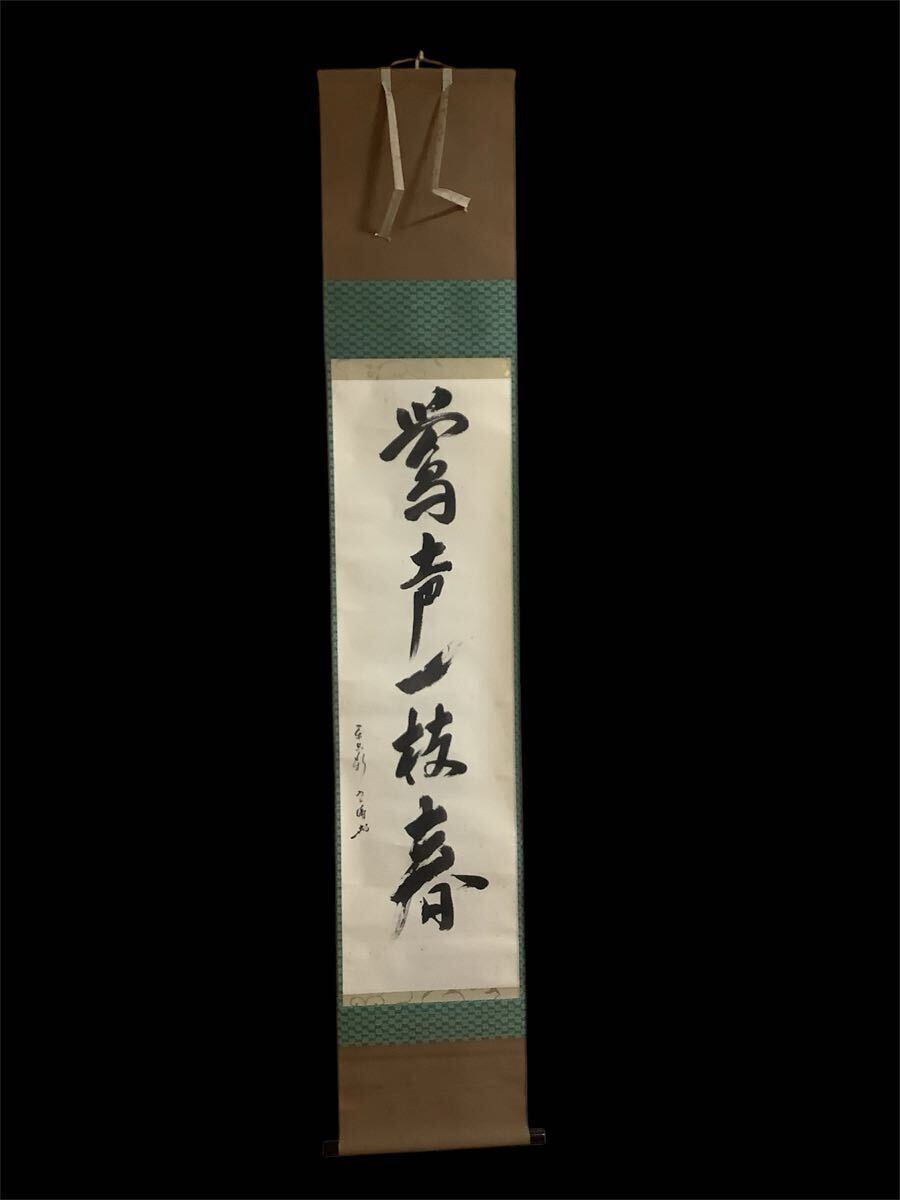 鶯声一枝春